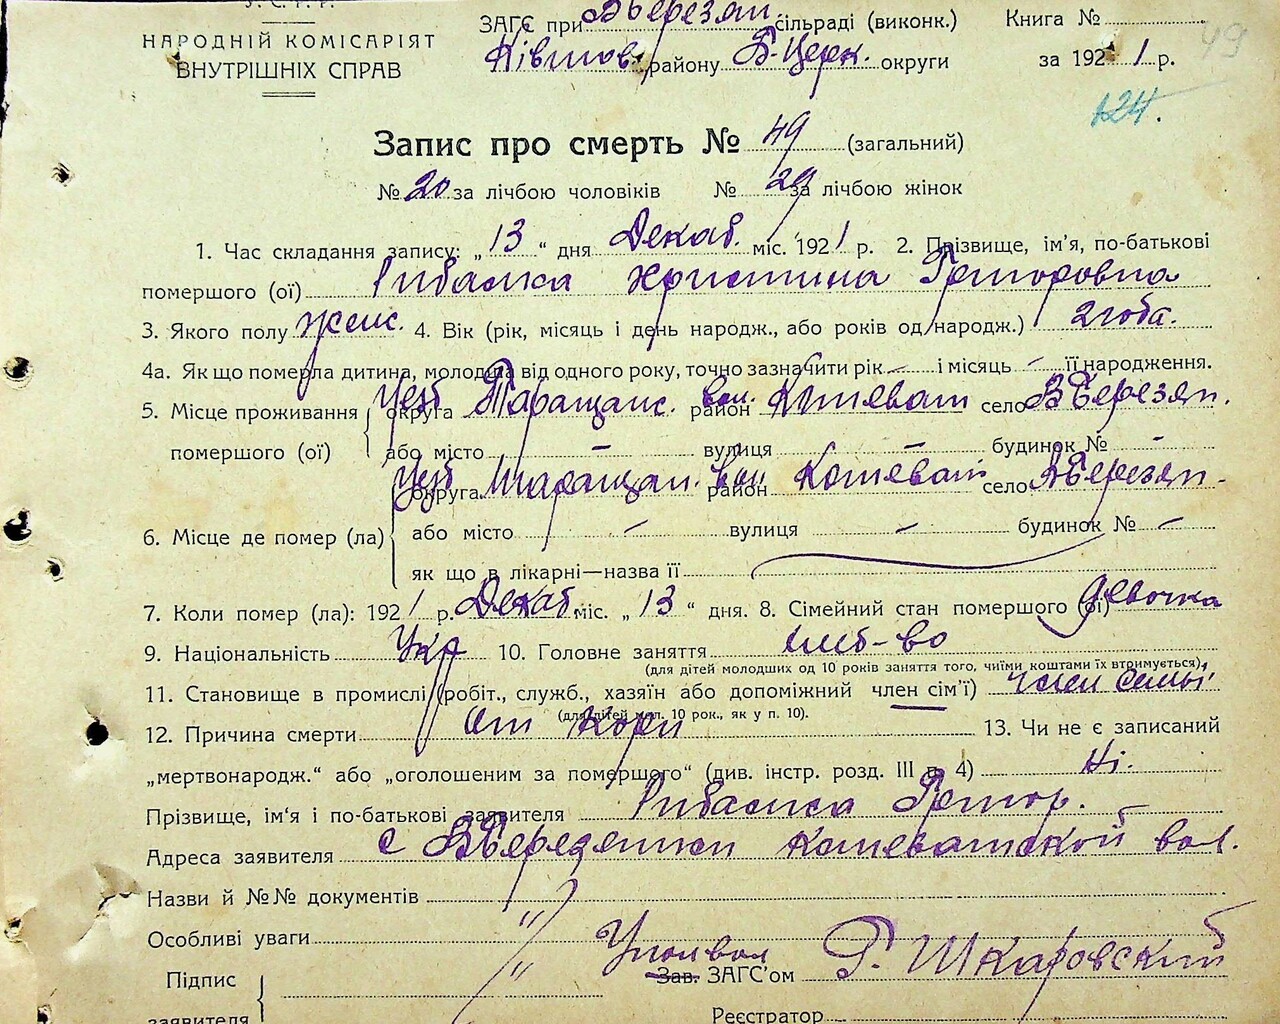 У. С. Р. Р.
НАРОДНІЙ КОМІСАРІЯТ
ВНУТРІШНІХ СПРАВ
ЗАГС при В Березян. сільраді (виконк.)
району Б-Церк. округи
Книга №
за 1921 р.
49
124.
Запис про смерть № 49 (загальний)
№ 20 за лічбою чоловіків № 29 за лічбою жінок
1. Час складання запису: „13“ дня Декаб. міс. 1921 р. 2. Прізвище, ім'я, по-батькові
помершого (ої) Рибалка Христина Григоровна
3. Якого полу женс. 4. Вік (рік, місяць і день народж., або років од народж.) 2 года.
4а. Як що померла дитина, молодша від одного року, точно зазначити рік — і місяць — її народження.
5. Місце проживання помершого (ої) округа Уезд Таращанс. район вол. Кошеват село В Березян.
або місто — вулиця — будинок № —
6. Місце де помер (ла) округа Уезд Таращан. район вол. Кошеват село В Березян.
або місто — вулиця — будинок № —
як що в лікарні—назва її
7. Коли помер (ла): 1921 р. Декаб. міс. „13“ дня. 8. Сімейний стан помершого (ої) девочка
9. Національність Укр 10. Головне заняття хлеб-во
(для дітей молодших од 10 років заняття того, чиїми коштами їх втримується)
11. Становище в промислі (робіт., служб., хазяїн або допоміжний член сім'ї) член семьі
(для дітей мол. 10 рок., як у п. 10).
12. Причина смерти от кори 13. Чи не є записаний
„мертвонародж.“ або „оголошеним за помершого“ (див. інстр. розд. III п. 4) Ні.
Прізвище, ім'я і по-батькові заявителя Рибалка Григор.
Адреса заявителя с В Березянки Кошеватской вол.
Назви й №№ документів
Особливі уваги "
Підпис заявителя "
Зав. ЗАГС'ом Р. Шкаровский
Реєстратор